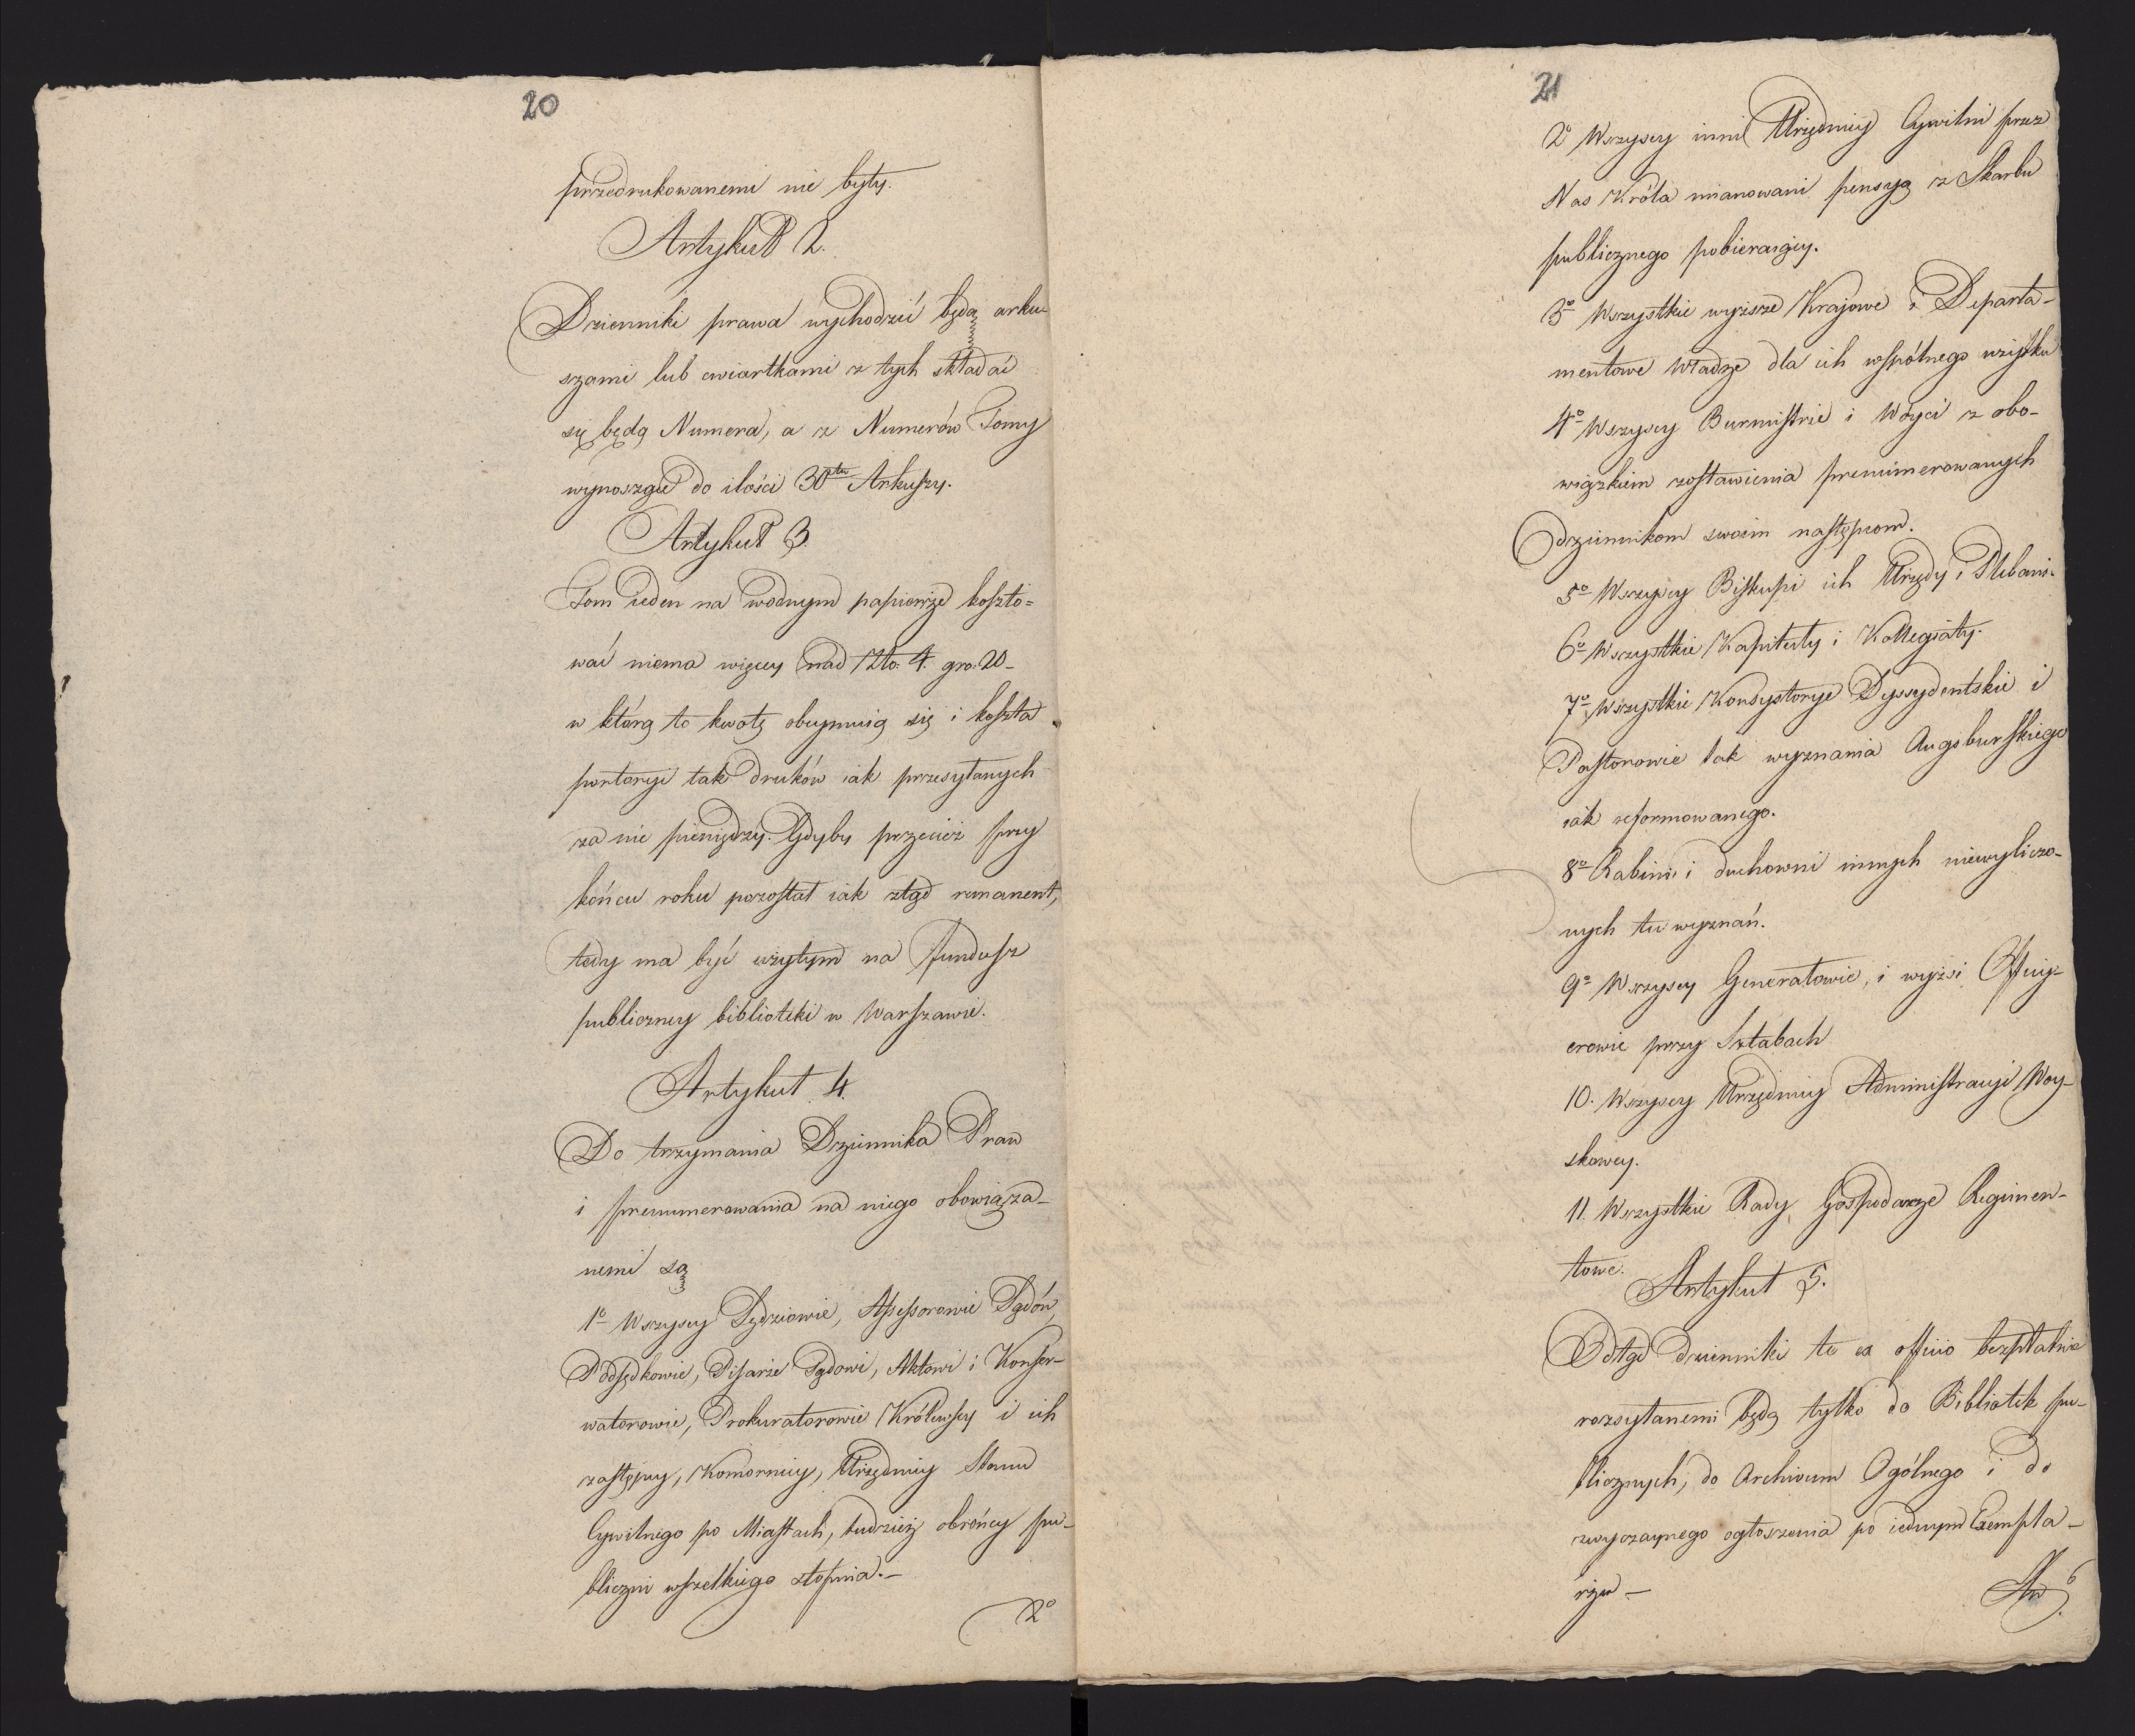 20
przedrukowanemi nie były.
Artykuł 2.
Dzienniki prawa wychodzić będą arku-
szami lub cwiartkami z tych składać
się będą Numera, a z Numerów Tomy
wynoszące do ilości 30stu Arkuszy.
Artykuł 3.
Tom ieden na wodnym papierze koszto=
wać niema więcey nad Zło. 4. gro. 20-
w którą to kwotę obeymuią się i koszta
portoryi tak druków iak przesyłanych
za nie pieniędzy. Gdyby przecież przy
końcu roku pozostał iak ztąd remanent,
tedy ma być użytym na fundusz
publiczney biblioteki w Warszawie.
Artykuł 4.
Do trzymania Dziennika Praw
i prenumerowania na niego obowiąza-
nemi są
1o Wszyscy Sędziowie, Assessorowie Sądów,
Podsędkowie, Pisarze Sądowi, Aktowi i Konser-
watorowie, Prokuratorowie Królewscy i ich
zastępcy, Komornicy, Urzędnicy Stanu
Cywilnego po Miastach, tudzież obrońcy pu-
bliczni wszelkiego stopnia.-
2o
21
2o Wszyscy inni Urzędnicy Cywilni przez
Nas Króla mianowani pensyą z Skarbu
publicznego pobieraiący.
3o Wszystkie wyższe Kraiowe i Departa-
mentowe Władze dla ich wspólnego użytku
4o Wszyscy Burmistrze i Woyci z obo-
wiązkiem zostawienia prenumerowanych
dziennikom swoim następcom.
5o Wszyscy Biskupi ich Urzędy i Plebani.
6o Wszystkie Kapituły i Kollegiaty.
7o Wszystkie Konsystorye Dyssydentskie i
Pastorowie tak wyznania Augsburskiego
iak reformowanego.
8o Rabini i duchowni innych niewyliczo-
nych tu wyznań.
9o Wszyscy Generałowie, i wyżsi Officy-
erowie przy Sztabach
10. Wszyscy Urzędnicy Administracyi Woy-
skowey.
11. Wszystkie Rady Gospodarcze Regimen-
towe.
Artykuł 5.
Odtąd dzienniki te ex officio bezpłatnie
rozsyłanemi będą tylko do Bibliotek pu-
blicznych, do Archivum Ogólnego i do
zwyczaynego ogłoszenia po iednym Exempla-
rzu -